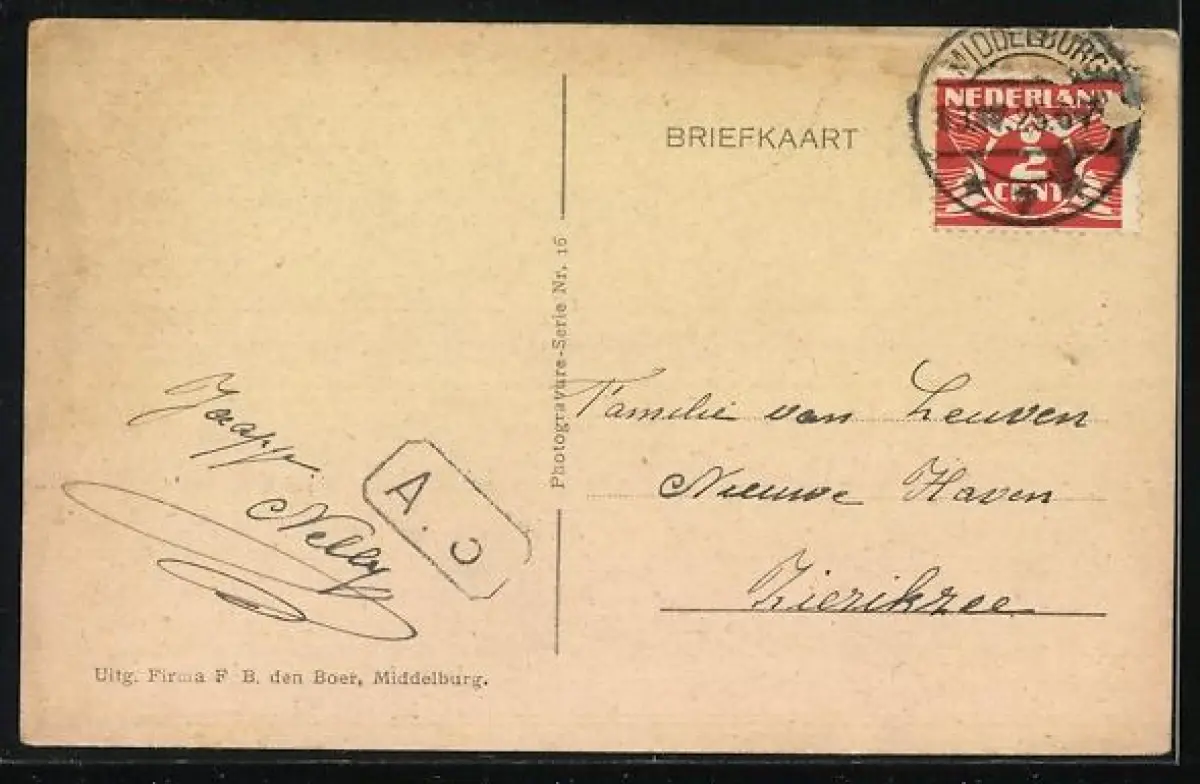 MIDDELBURG
NEDERLAND
2
CENT
BRIEFKAART
Photogravure-Serie Nr. 16
Familie van Leuven
Nieuwe Haven
Zierikzee
Jaap
Nelly
A. C
Uitg. Firma F B. den Boer, Middelburg.